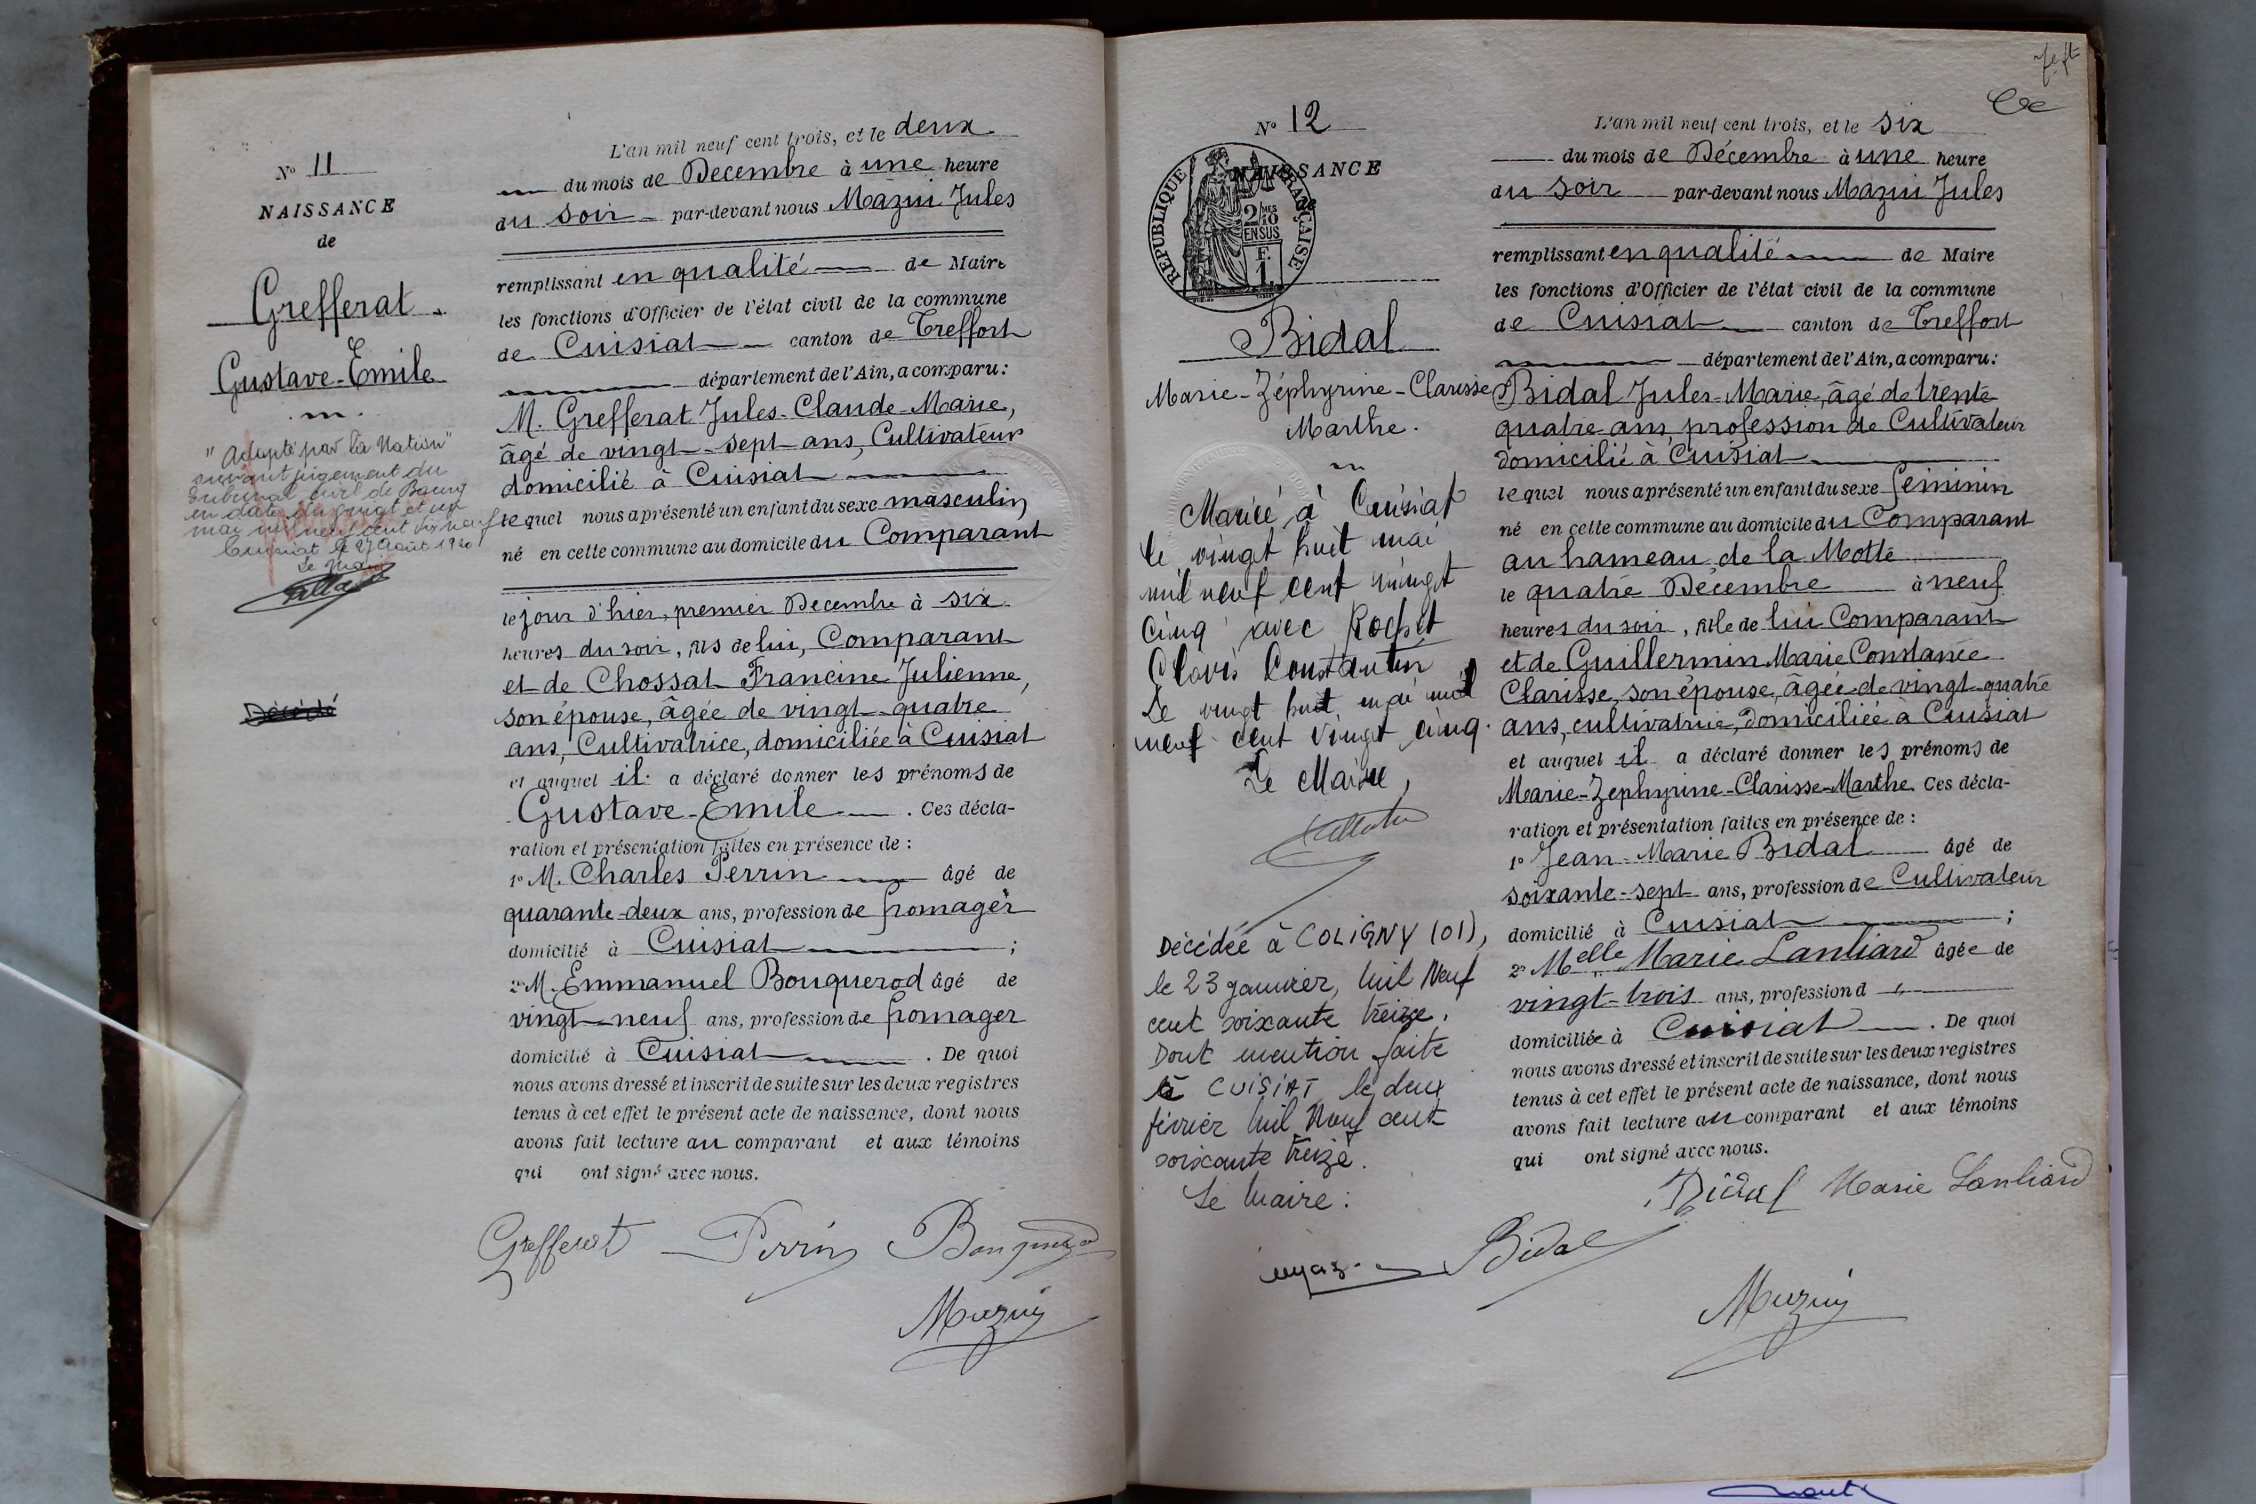 N° 11
NAISSANCE
de
Grefferat
Gustave-Emile
"Adopté par la Nation"
suivant jugement du
Tribunal civil de Bourg
en date du vingt et un
mai mil neuf cent dix neuf
Cuisiat le 27 Août 1920
Le Maire
Décédé
L'an mil neuf cent trois, et le deux
du mois de Décembre à une heure
du soir par-devant nous Mazui Jules
remplissant en qualité de Maire
les fonctions d'Officier de l'état civil de la commune
de Cuisiat canton de Treffort
département de l'Ain, a comparu:
M. Grefferat Jules-Claude-Marie,
âgé de vingt-sept ans, Cultivateur
domicilié à Cuisiat
lequel nous a présenté un enfant du sexe masculin
né en cette commune au domicile du Comparant
le jour d'hier, premier Décembre à six
heures du soir, fils de lui, Comparant
et de Chossat Francine Julienne,
son épouse, âgée de vingt-quatre
ans, Cultivatrice, domiciliée à Cuisiat
et auquel il a déclaré donner les prénoms de
Gustave-Emile. Ces décla-
ration et présentation faites en présence de :
1° M. Charles Perrin âgé de
quarante-deux ans, profession de fromager
domicilié à Cuisiat ;
2° M. Emmanuel Bouquerod âgé de
vingt-neuf ans, profession de fromager
domicilié à Cuisiat. De quoi
nous avons dressé et inscrit de suite sur les deux registres
tenus à cet effet le présent acte de naissance, dont nous
avons fait lecture au comparant et aux témoins
qui ont signé avec nous.
Grefferat Perrin Bouquerod
Mazui
N° 12
NAISSANCE
de
RÉPUBLIQUE FRANÇAISE
2/10MES
EN SUS
F.
1
Bidal
Marie-Zéphyrine-Clarisse
Marthe.
Mariée à Cuisiat
le vingt huit mai
mil neuf cent vingt
cinq avec Rochet
Clovis Constantin
Le vingt huit mai mil
neuf cent vingt cinq.
Le Maire,
Décédée à COLIGNY (01),
le 23 janvier, Mil Neuf
cent soixante treize.
Dont mention faite
à CUISIAT le deux
février Mil Neuf cent
soixante treize.
Le Maire :
Bidal
L'an mil neuf cent trois, et le six
du mois de Décembre à une heure
du soir par-devant nous Mazui Jules
remplissant en qualité de Maire
les fonctions d'Officier de l'état civil de la commune
de Cuisiat canton de Treffort
département de l'Ain, a comparu:
Bidal Jules-Marie, âgé de trente
quatre ans, profession de Cultivateur
domicilié à Cuisiat
lequel nous a présenté un enfant du sexe féminin
né en cette commune au domicile du Comparant
au hameau de la Motte
le quatre Décembre à neuf
heures du soir, fille de lui Comparant
et de Guillermin Marie Constance
Clarisse, son épouse, âgée de vingt-quatre
ans, cultivatrice, domiciliée à Cuisiat
et auquel il a déclaré donner les prénoms de
Marie-Zephyrine-Clarisse-Marthe. Ces décla-
ration et présentation faites en présence de :
1° Jean-Marie Bidal âgé de
soixante-sept ans, profession de Cultivateur
domicilié à Cuisiat ;
2° Melle Marie Lanliard âgée de
vingt-trois ans, profession d "
domiciliée à Cuisiat. De quoi
nous avons dressé et inscrit de suite sur les deux registres
tenus à cet effet le présent acte de naissance, dont nous
avons fait lecture au comparant et aux témoins
qui ont signé avec nous.
Bidal Marie Lanliard
Mazui